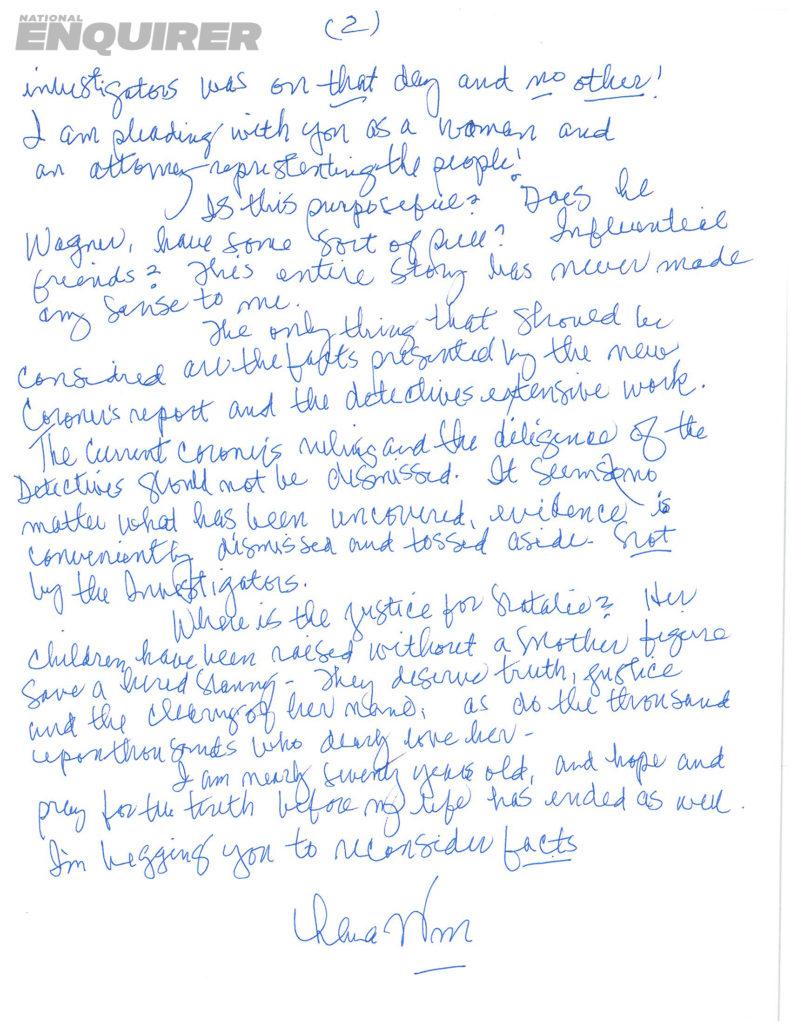 NATIONAL
ENQUIRER
(2)
investigators was on that day and no other!
I am pleading with you as a woman and
an attorney representing the people!
Is this purposeful? Does he
Wagner, have some sort of pull? Influential
friends? This entire story has never made
any sense to me.
The only thing that should be
considred are the facts presented by the new
Coroner's report and the detectives extensive work.
The current coroner's ruling and the diligence of the
Detectives should not be dismissed. It seems no
matter what has been uncovered, evidence is
conveniently dismissed and tossed aside - not
by the Investigators.
Where is the justice for Natalie? Her
children, have been raised without a mother figure
save a hired nanny - They deserve truth, justice
and the clearing of her name, as do the thousand
upon thousands who dearly love her -
I am nearly seventy years old, and hope and
pray for the truth before my life has ended as well.
I'm begging you to reconsider facts
Lana Wood